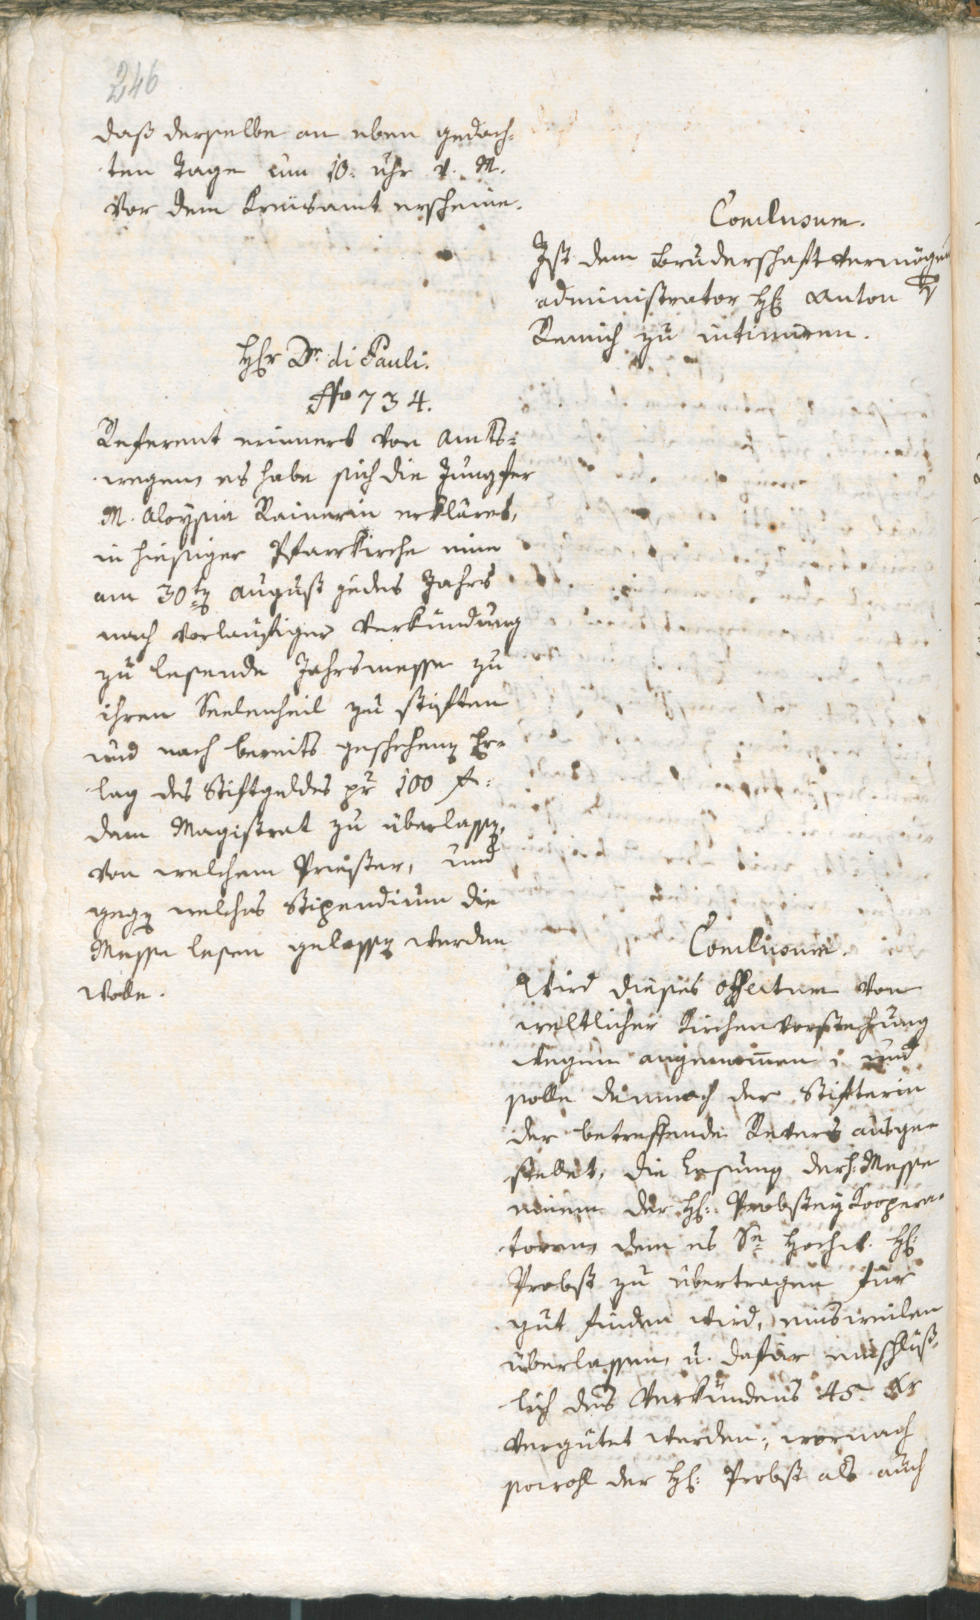 246
daß derselbe an eben gedach-
ten Tage um 10. Uhr V. M.
vor dem Kreisamt erscheine.
Conclusum.
Ist dem Bruderschaftvermögens
administrator H: Anton v
Remich zu intimiren.
Hr Dr. di Pauli.
No 734.
Referent erinnert von Amts-
wegen es habe sich die Jungfer
M. Aloysia Rainerin erkläret,
in hiesiger Pfarrkirche eine
am 30ten August jedes Jahrs
nach vorläufiger Verkündung
zu lesende Jahrsmesse zu
ihren Seelenheil zu stiften
und nach bereits geschehenen Er-
lag des Stiftgeldes pr 100 f:
dem Magistrat zu überlassen,
von welchem Priester, und
gegen welches Stipendium die
Messe lesen gelassen werden
wolle.
Conclusum.
Wird dieses offertum von
weltlicher Kirchenvorstehung
wegen angenommen, und
solle demnach der Stifterin
der betreffende Revers ausge-
stellet, die Lesung der h: Messe
einem der H: Probstey Koopera-
toren, dem es Se Hochw. H:
Probst zu übertragen für
gut finden wird, einsweilen
überlassen, u. dafür einschlüß-
lich des Verkündens 45 Kr
vergütet werden, wornach
sowohl der H: Probst als auch